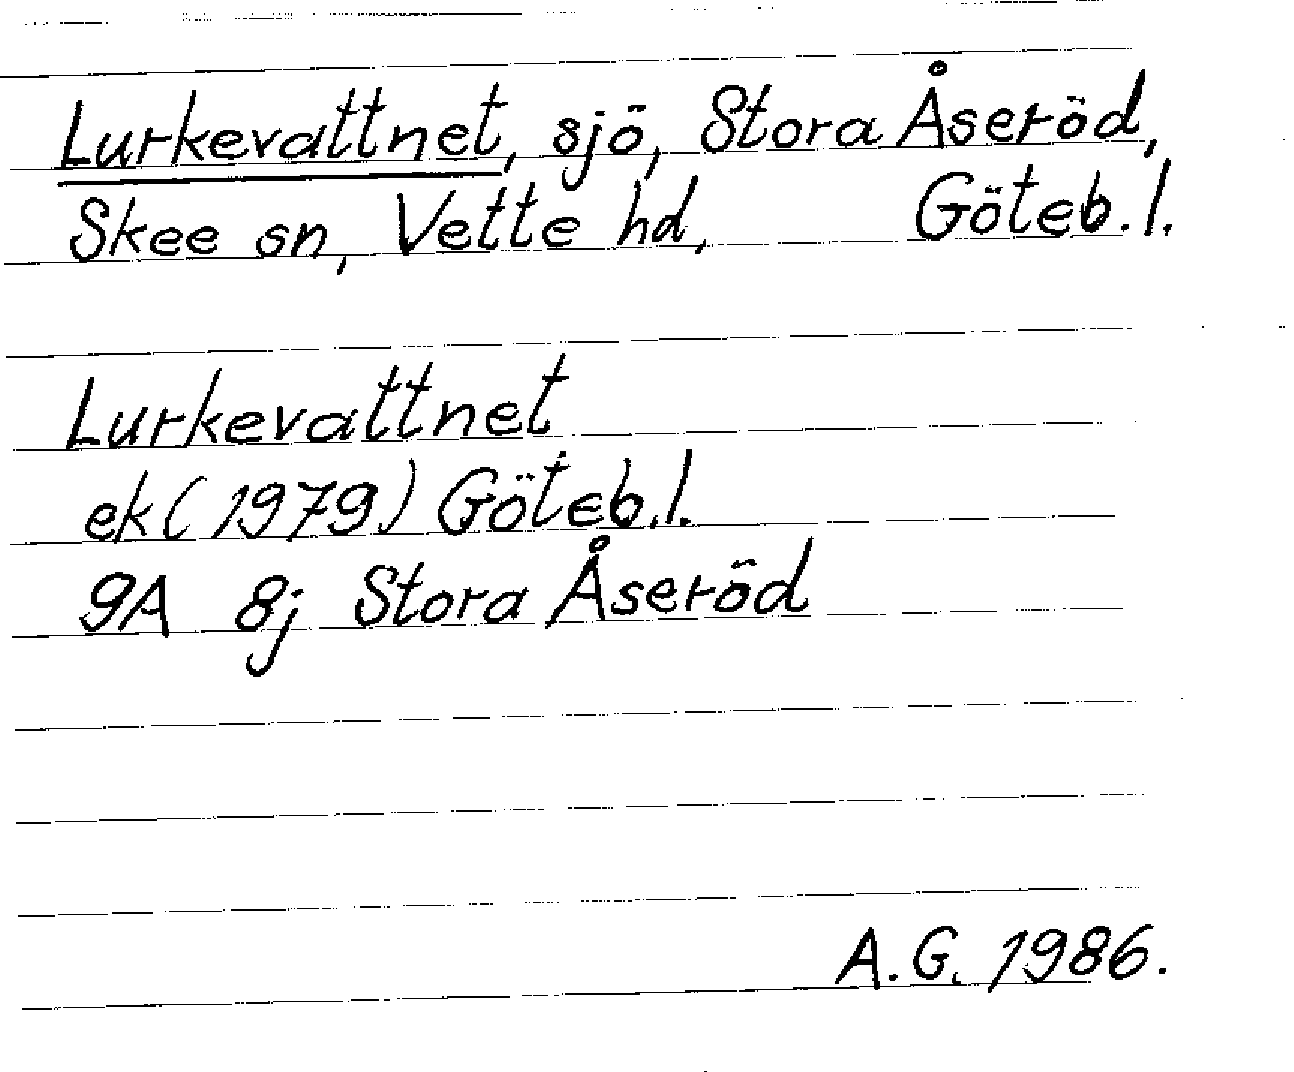 Lurkevattnet, sjö, Stora Åseröd,
Skee sn, Vette hd, Göteb. l.
Lurkevattnet
ek (1979) Göteb. l.
9A 8j Stora Åseröd
A. G. 1986.